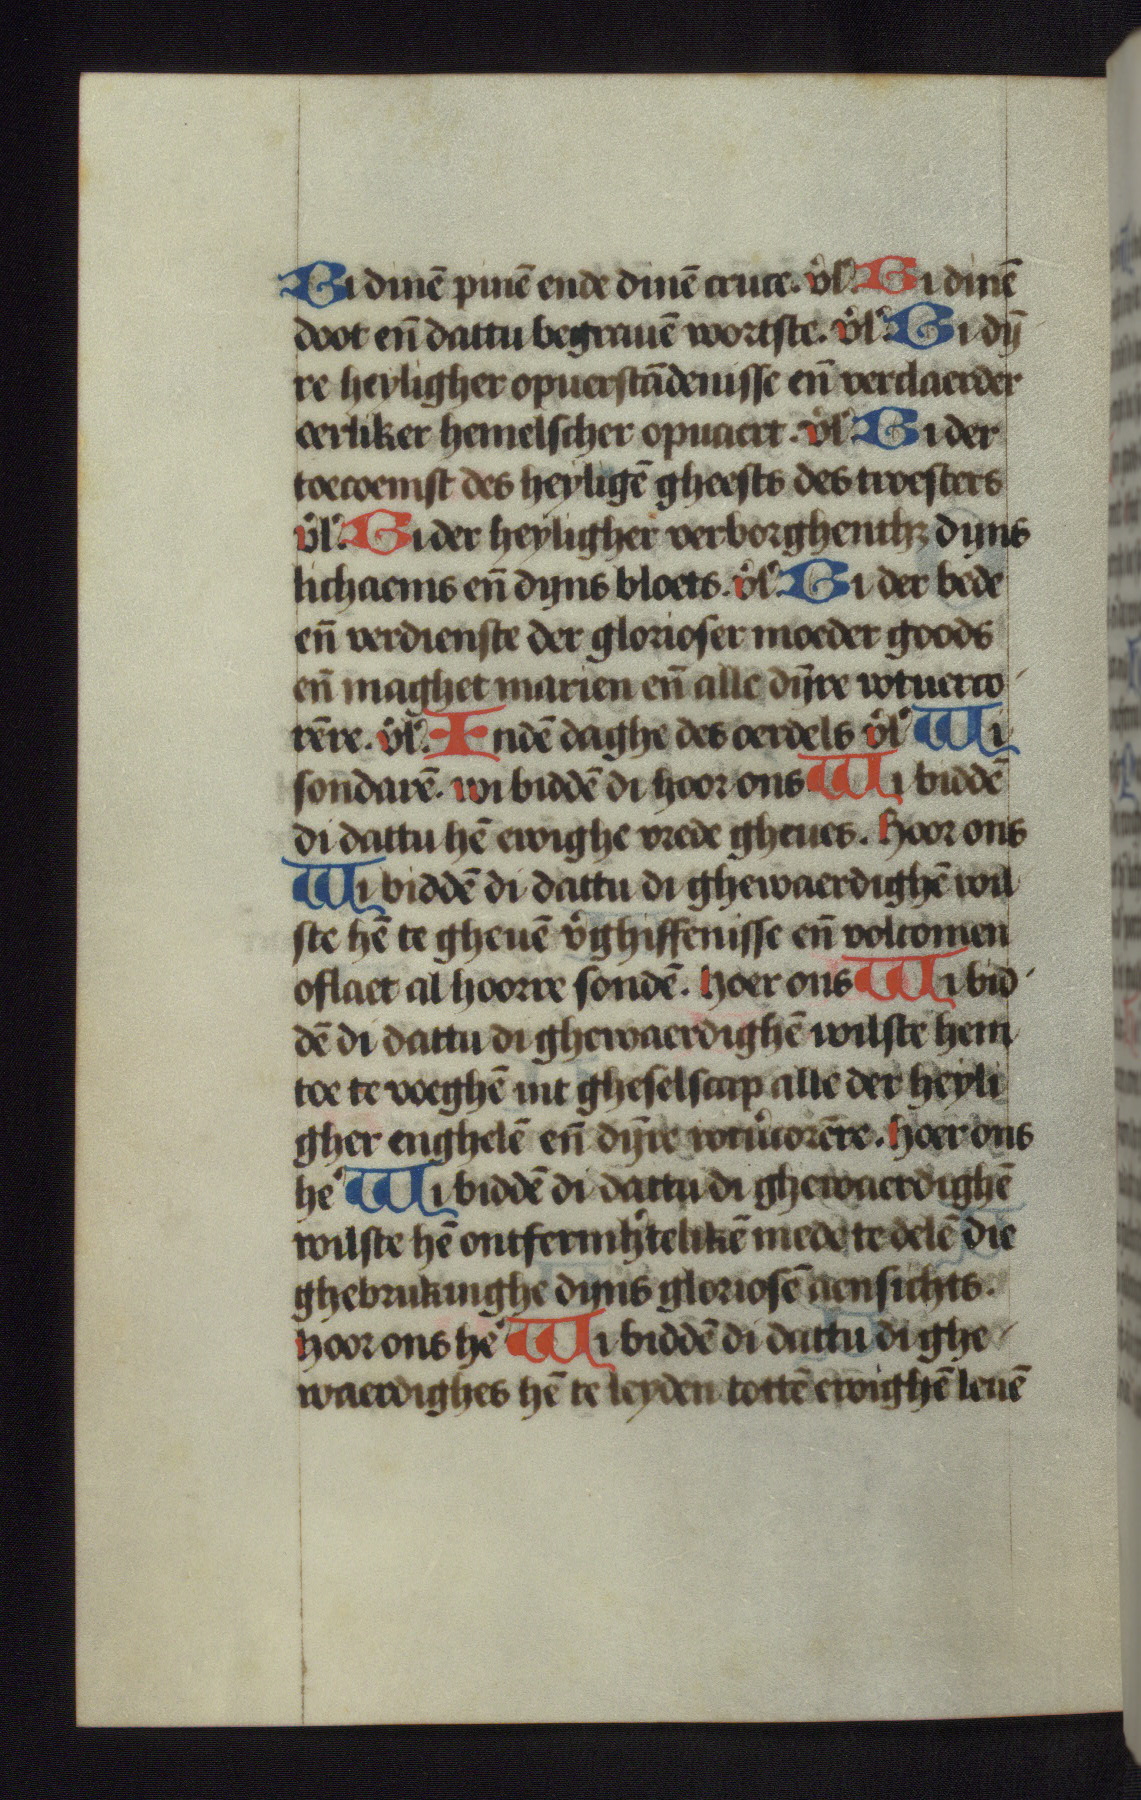 Bi dinē pinē ende dinē cruce. v̉l'. Bi dinē
doot en̄ dattu begrauē wortste. v̉l'. Bi dij̄
re heyligher opuerstādenisse en̄ verclaerder
eerliker hemelscher opuaert. v̉l'. Bi der
toecoemst des heyligē gheests des troesters
v̉l'. Bi der heyligher verborghenthꝫ dijns
lichaems en̄ dijns bloets. v̉l'. Bi der bede
en̄ verdienste der glorioser moeder goods
en̄ maghet marien en̄ alle dij̄re wtuerco
rēre. v̉l'. Indē daghe des oerdels v̉l' Wi
sondarē. wi biddē di hoor ons Wi biddē
di dattu hē ewighe vrede gheues. Hoor ons
Wi biddē di dattu di ghewaerdighē wil
ste hē te gheuē v̉ghiffenisse en̄ volcomen
oflaet al hoorre sondē. Hoer ons Wi bid
dē di dattu di ghewaerdighē wilste hem
toe te voeghē int gheselscap alle der heyli
gher enghelē en̄ dij̄re wtu̓corēre. Hoer ons
he' Wi biddē di dattu di ghewaerdighē
wilste hē ontfermh̓telikē mede te delē die
ghebrukinghe dijns gloriosē aensichts.
Hoor ons he' Wi biddē di dattu di ghe
waerdighes hē te leyden tottē ewighē leuē